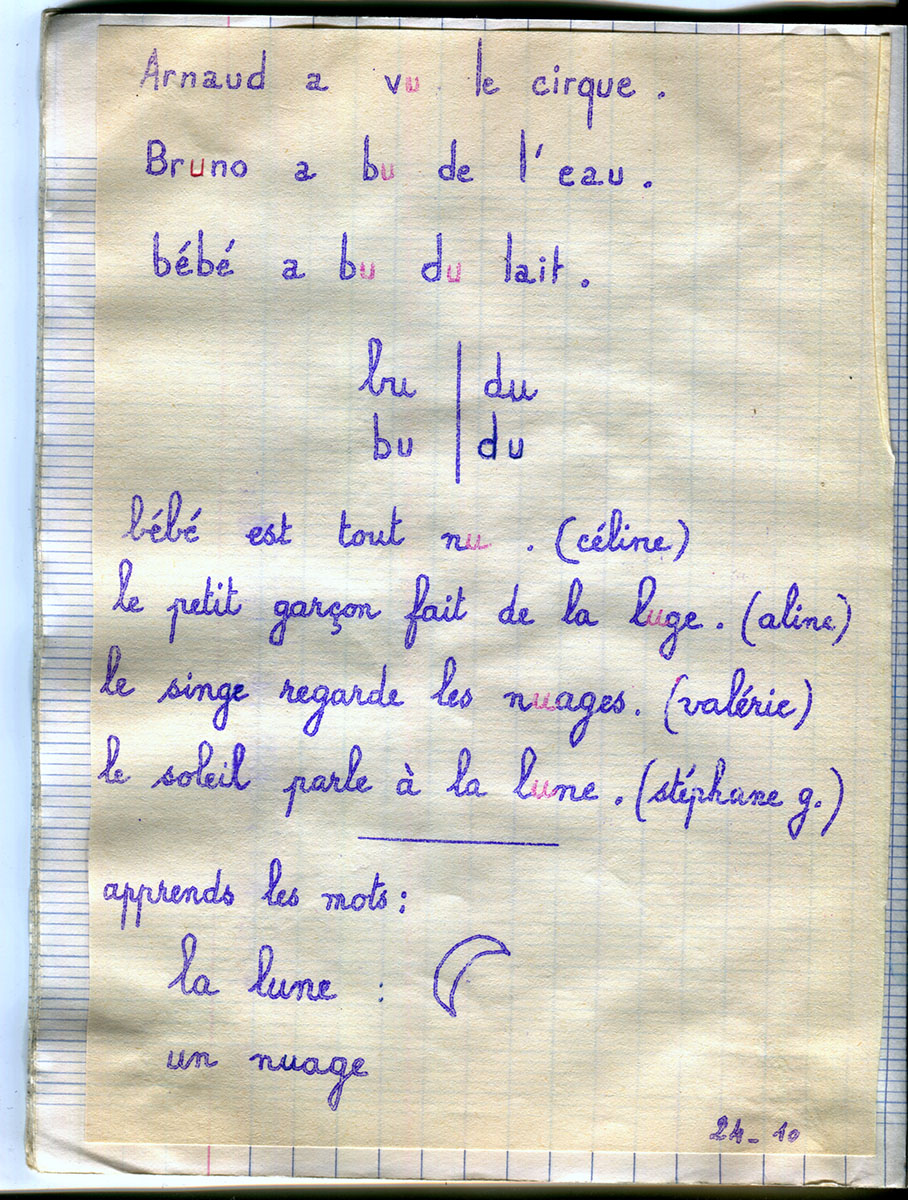 Arnaud a vu le cirque.
Bruno a bu de l'eau.
bébé a bu du lait.
bu | du
bu | du
bébé est tout nu. (céline)
le petit garçon fait de la luge. (aline)
le singe regarde les nuages. (valérie)
le soleil parle à la lune. (stéphane g.)
apprends les mots:
la lune :
un nuage
24-10